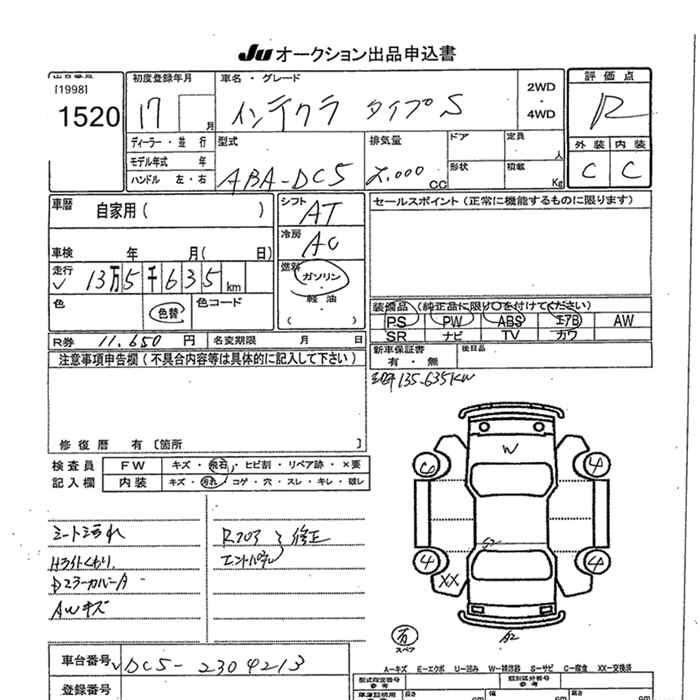 JU オークション出品申込書
[1998]
1520
初度登録年月
17 月
車名・グレード
インテグラ タイプS
2WD
・
4WD
評価点
R
外装 内装
C C
ディーラー・並行
モデル年式 年
ハンドル 左・右
型式
ABA-DC5
排気量
2.000 CC
ドア
定員
人
形状
積載
Kg
車歴
自家用( )
シフト
AT
セールスポイント(正常に機能するものに限ります)
車検 年 月( 日)
冷房
AC
走行
13万5千635km
燃料
ガソリン
・
軽油
( )
色
色替
色コード
装備品 (純正品に限り○を付けてください)
PS PW ABS エアB AW
SR ナビ TV カワ
R券 11.650円
名変期限 月 日
新車保証書
有・無
後日品
注意事項申告欄(不具合内容等は具体的に記入して下さい)
135.635KM
修復歴 有〔箇所 〕
検査員
記入欄
FW キズ・飛石・ヒビ割・リペア跡・×要
内装 キズ・汚れ・コゲ・穴・スレ・キレ・破レ
シート汚れ
Hライトくもり
AWキズ
修正
W
4
4
4
XX
有
スペア
A2
A-キズ E-エクボ U-凹み W-補修跡 S-サビ C-腐食 XX-交換済
車台番号
DC5-2304213
登録番号
型式指定番号
参考
類別区分番号
参考
長さ
幅
高さ